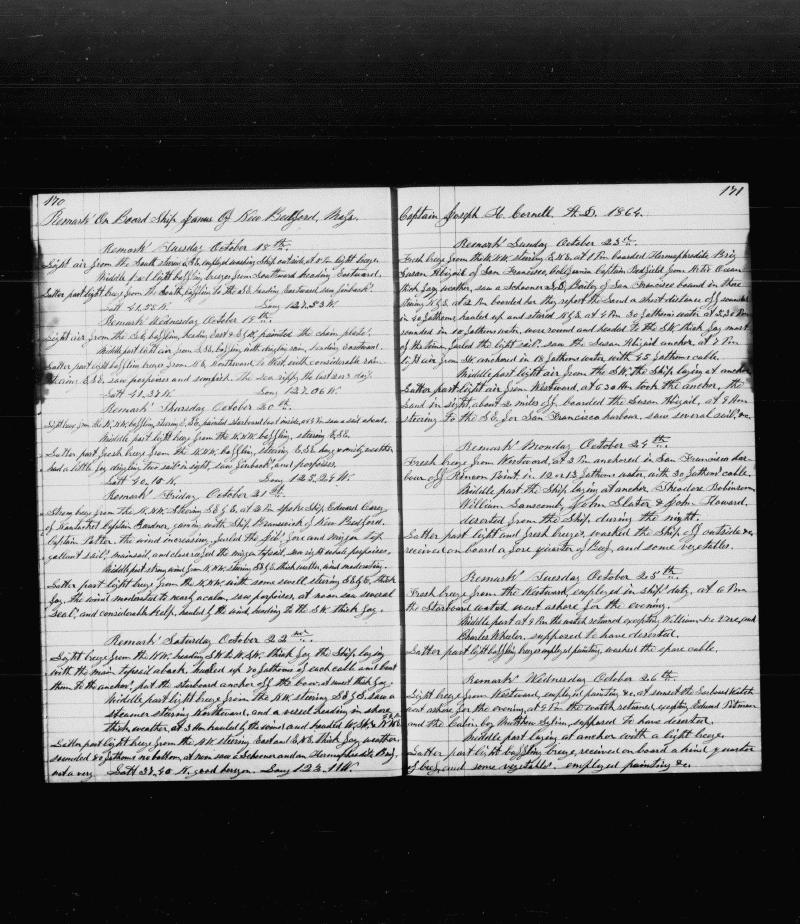 170
Remarks On Board Ship James Of New Bedford, Mass.
Remarks Tuesday October 18th.
Light air from the South steering E, employed washing Ship outside, at 8 Pm light breeze.
Middle part light baffling breeze from Southward heading Eastward.
Latter part light breeze from the South, baffling to the SE heading Eastward saw finbacks.
Latt 41.25 N. Long 127.53 W.
Remarks Wednesday October 19th.
Light air from the SE, baffling, heading East & painted the chain plates.
Middle part light air from SE, baffling, with drizzling rain, heading Eastward.
Latter part light baffling breeze from Northward to West, with considerable rain
steering ESE. saw porpoises and sunfish. The sea rips, the last 2 or 3 days.
Latt 41.34 N. Long 127.06 W.
Remarks Thursday October 20th.
Light breeze from the NNW baffling, steering painted starboard boat inside, saw a sail ahead.
Middle part light breeze from the NNW baffling, steering ESE.
Latter part fresh breeze from the NNW baffling, steering ESE, weather
had a little fog drizzling, two sail in sight, saw finbacks, and porpoises.
Latt 40.15 N. Long 125.24 W.
Remarks Friday October 21st.
Strong breeze from the NNW steering SE, at 2 Pm spoke Ship Edward Carey
of Nantucket Captain Gardner gaming with Ship Brunswick of New Bedford.
Captain Potter. The wind increasing, furled the jib, fore and mizen top
gallant sails, mainsail, and close reefed the mizen topsail, saw right whale porpoises.
Middle part strong wind from NNW, steering thick weather, wind moderating.
Latter part light breeze from the NNW with some swell, steering thick
fog, the wind moderated to nearly a calm, saw porpoises, at noon saw several
Seals, and considerable kelp, hauled by the wind heading to the SW thick fog.
Remarks Saturday October 22nd.
Light breeze from the NW, heading SW to WSW thick fog the Ship laying
with the main topsail aback. shacked up 70 fathoms of each cable and bent
them to the anchors, put the starboard anchor off the bow, at sunset thick fog.
Middle part light breeze from the NW steering saw a
steamer steering Northward, and a vessel heading in shore
thick weather, at 3 Am hauled by the wind and headed
Latter part light breeze from the NW steering East and thick fog weather.
sounded 80 fathoms no bottom, at noon saw a Schooner and an Hermaphrodite Brig,
not a very Latt 37.40 N. good horizon. Long 123.11 W.
171
Captain Joseph H. Cornell A.D. 1864.
Remarks Sunday October 23rd.
Fresh breeze from the NNW steering at 1 Pm boarded Hermaphrodite Brig
Susan Abigail of San Francisco, California Captain Redfield from Ocean
thick fog weather, saw a Schooner Bailey of San Francisco bound in there
steering at 2 Pm boarded her they report the Land a short distance off sounded
in 40 fathoms hauled up and steered at 4 Pm 30 fathoms water at 5,30 Pm
sounded in 18 fathoms water, wore round and headed to the SW thick fog most
of the time, furled the light sails. saw the Susan Abigail anchor, at 7 Pm
light air from SW, anchored in 18 fathoms water, with 45 fathoms cable.
Middle part light air from the SW, the Ship laying at anchor.
Latter part light air from Westward, at 6 30 Am took the anchor, the
Land in sight, about 2 miles off, boarded the Susan Abigail, at 9 Am
steering to the SE, for San Francisco harbour, saw several sail, &c.
Remarks Monday October 24th.
Fresh breeze from Westward, at 3 Pm anchored in San Francisco har-
bour off Rincon Point in 12 or 13 fathoms water, with 30 fathoms cable.
Middle part the Ship laying at anchor Theodore Robinson
William Sanscomby John Slater & John Howard.
deserted from the Ship during the night.
Latter part light and fresh breeze, washed the Ship off outside &c
received on board a fore quarter of Beef, and some vegetables.
Remarks Tuesday October 25th.
Fresh breeze from the Westward, employed in ships duty, at 6 Pm
the Starboard watch went ashore for the evening.
Middle part at 9 Pm the watch returned excepting William De Vere, and
Charles Wheeler, supposed to have deserted.
Latter part light baffling breeze employed painting, washed the spare cable.
Remarks Wednesday October 26th.
Light breeze from Westward, employed painting &c, at sunset the Larboard Watch
went ashore for the evening, at 9 Pm the watch returned excepting Edward Pitman
and the Cabin boy Matthew supposed to have deserted.
Middle part laying at anchor with a light breeze.
Latter part light baffling breeze, received on board a hind quarter
of beef, and some vegetables employed painting &c.